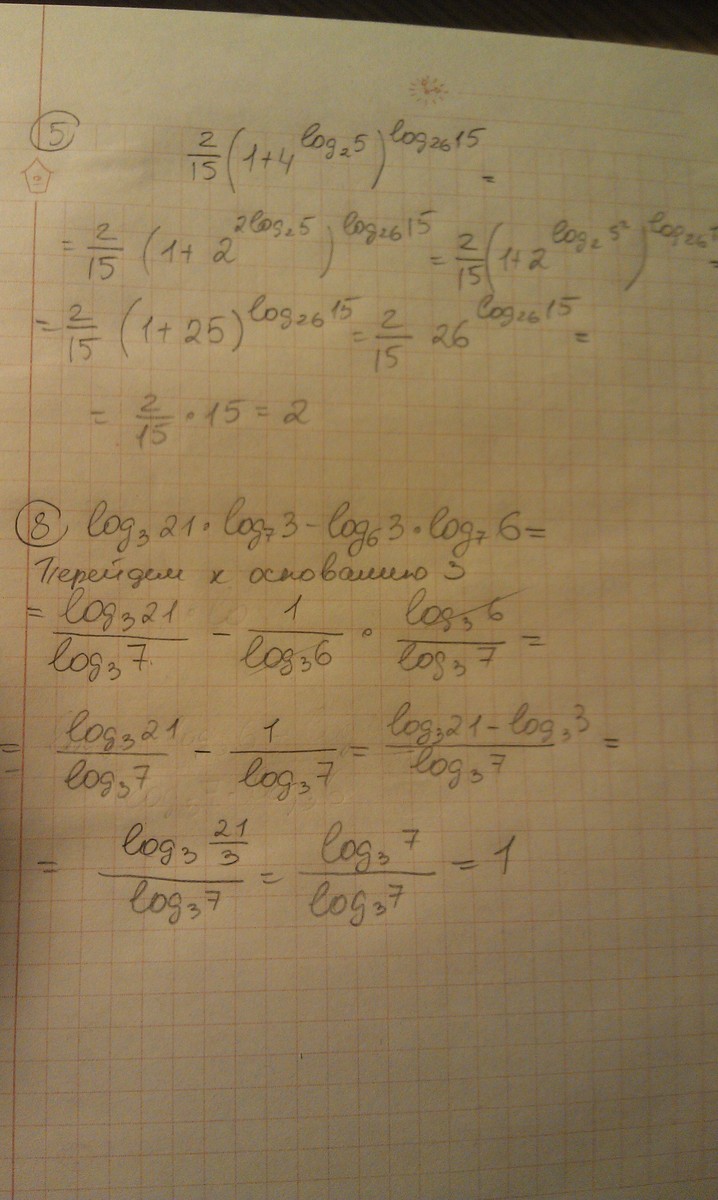 5
2/15 (1+4^(log₂5))^(log₂₆15) =
= 2/15 (1+2^(2log₂5))^(log₂₆15) = 2/15 (1+2^(log₂5²))^(log₂₆1
= 2/15 (1+25)^(log₂₆15) = 2/15 26^(log₂₆15) =
= 2/15 • 15 = 2
8 log₃21 • log₇3 - log₆3 • log₇6 =
Перейдем к основанию 3
= log₃21/log₃7 - 1/log₃6 • log₃6/log₃7 =
= log₃21/log₃7 - 1/log₃7 = (log₃21 - log₃3)/log₃7 =
= log₃(21/3)/log₃7 = log₃7/log₃7 = 1